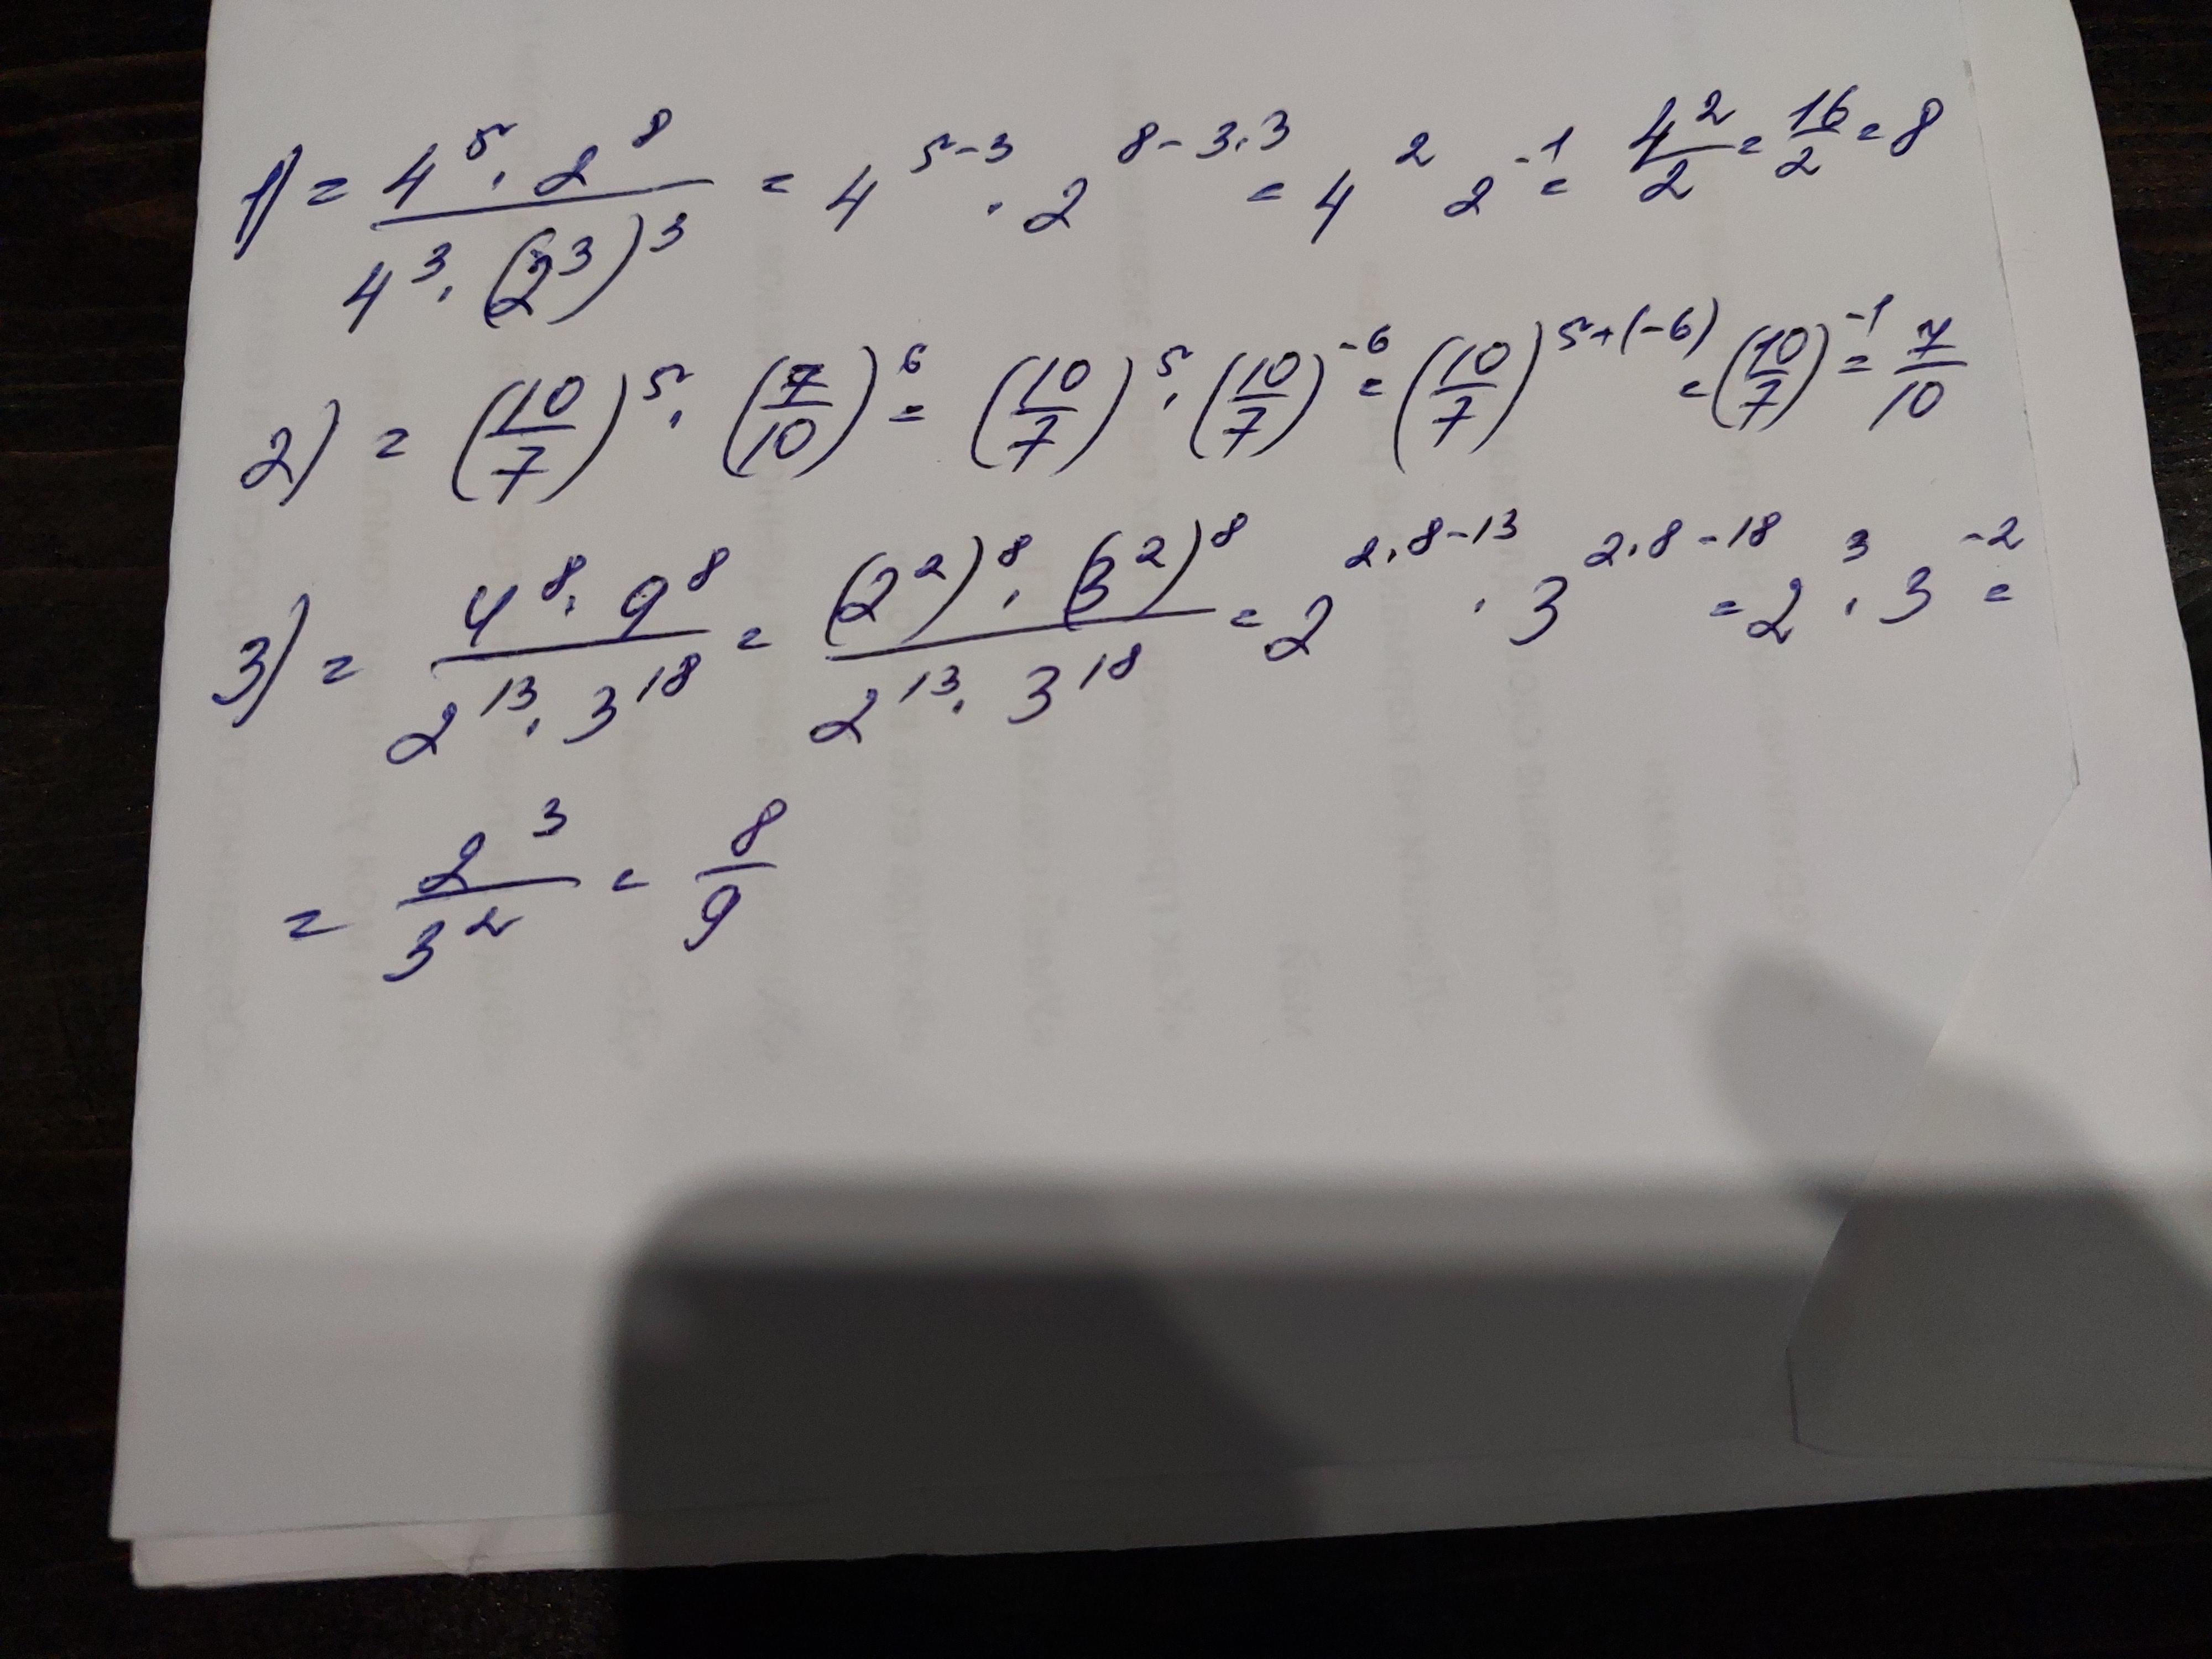 1) = 4^5 · 2^8 / 4^3 · (2^3)^3 = 4^(5-3) · 2^(8-3·3) = 4^2 2^-1 = 4^2/2 = 16/2 = 8
2) = (10/7)^5 · (7/10)^6 = (10/7)^5 · (10/7)^-6 = (10/7)^(5+(-6)) = (10/7)^-1 = 7/10
3) = 4^8 · 9^8 / 2^13 · 3^18 = (2^2)^8 · (3^2)^8 / 2^13 · 3^18 = 2^(2·8-13) · 3^(2·8-18) = 2^3 · 3^-2 =
= 2^3/3^2 = 8/9